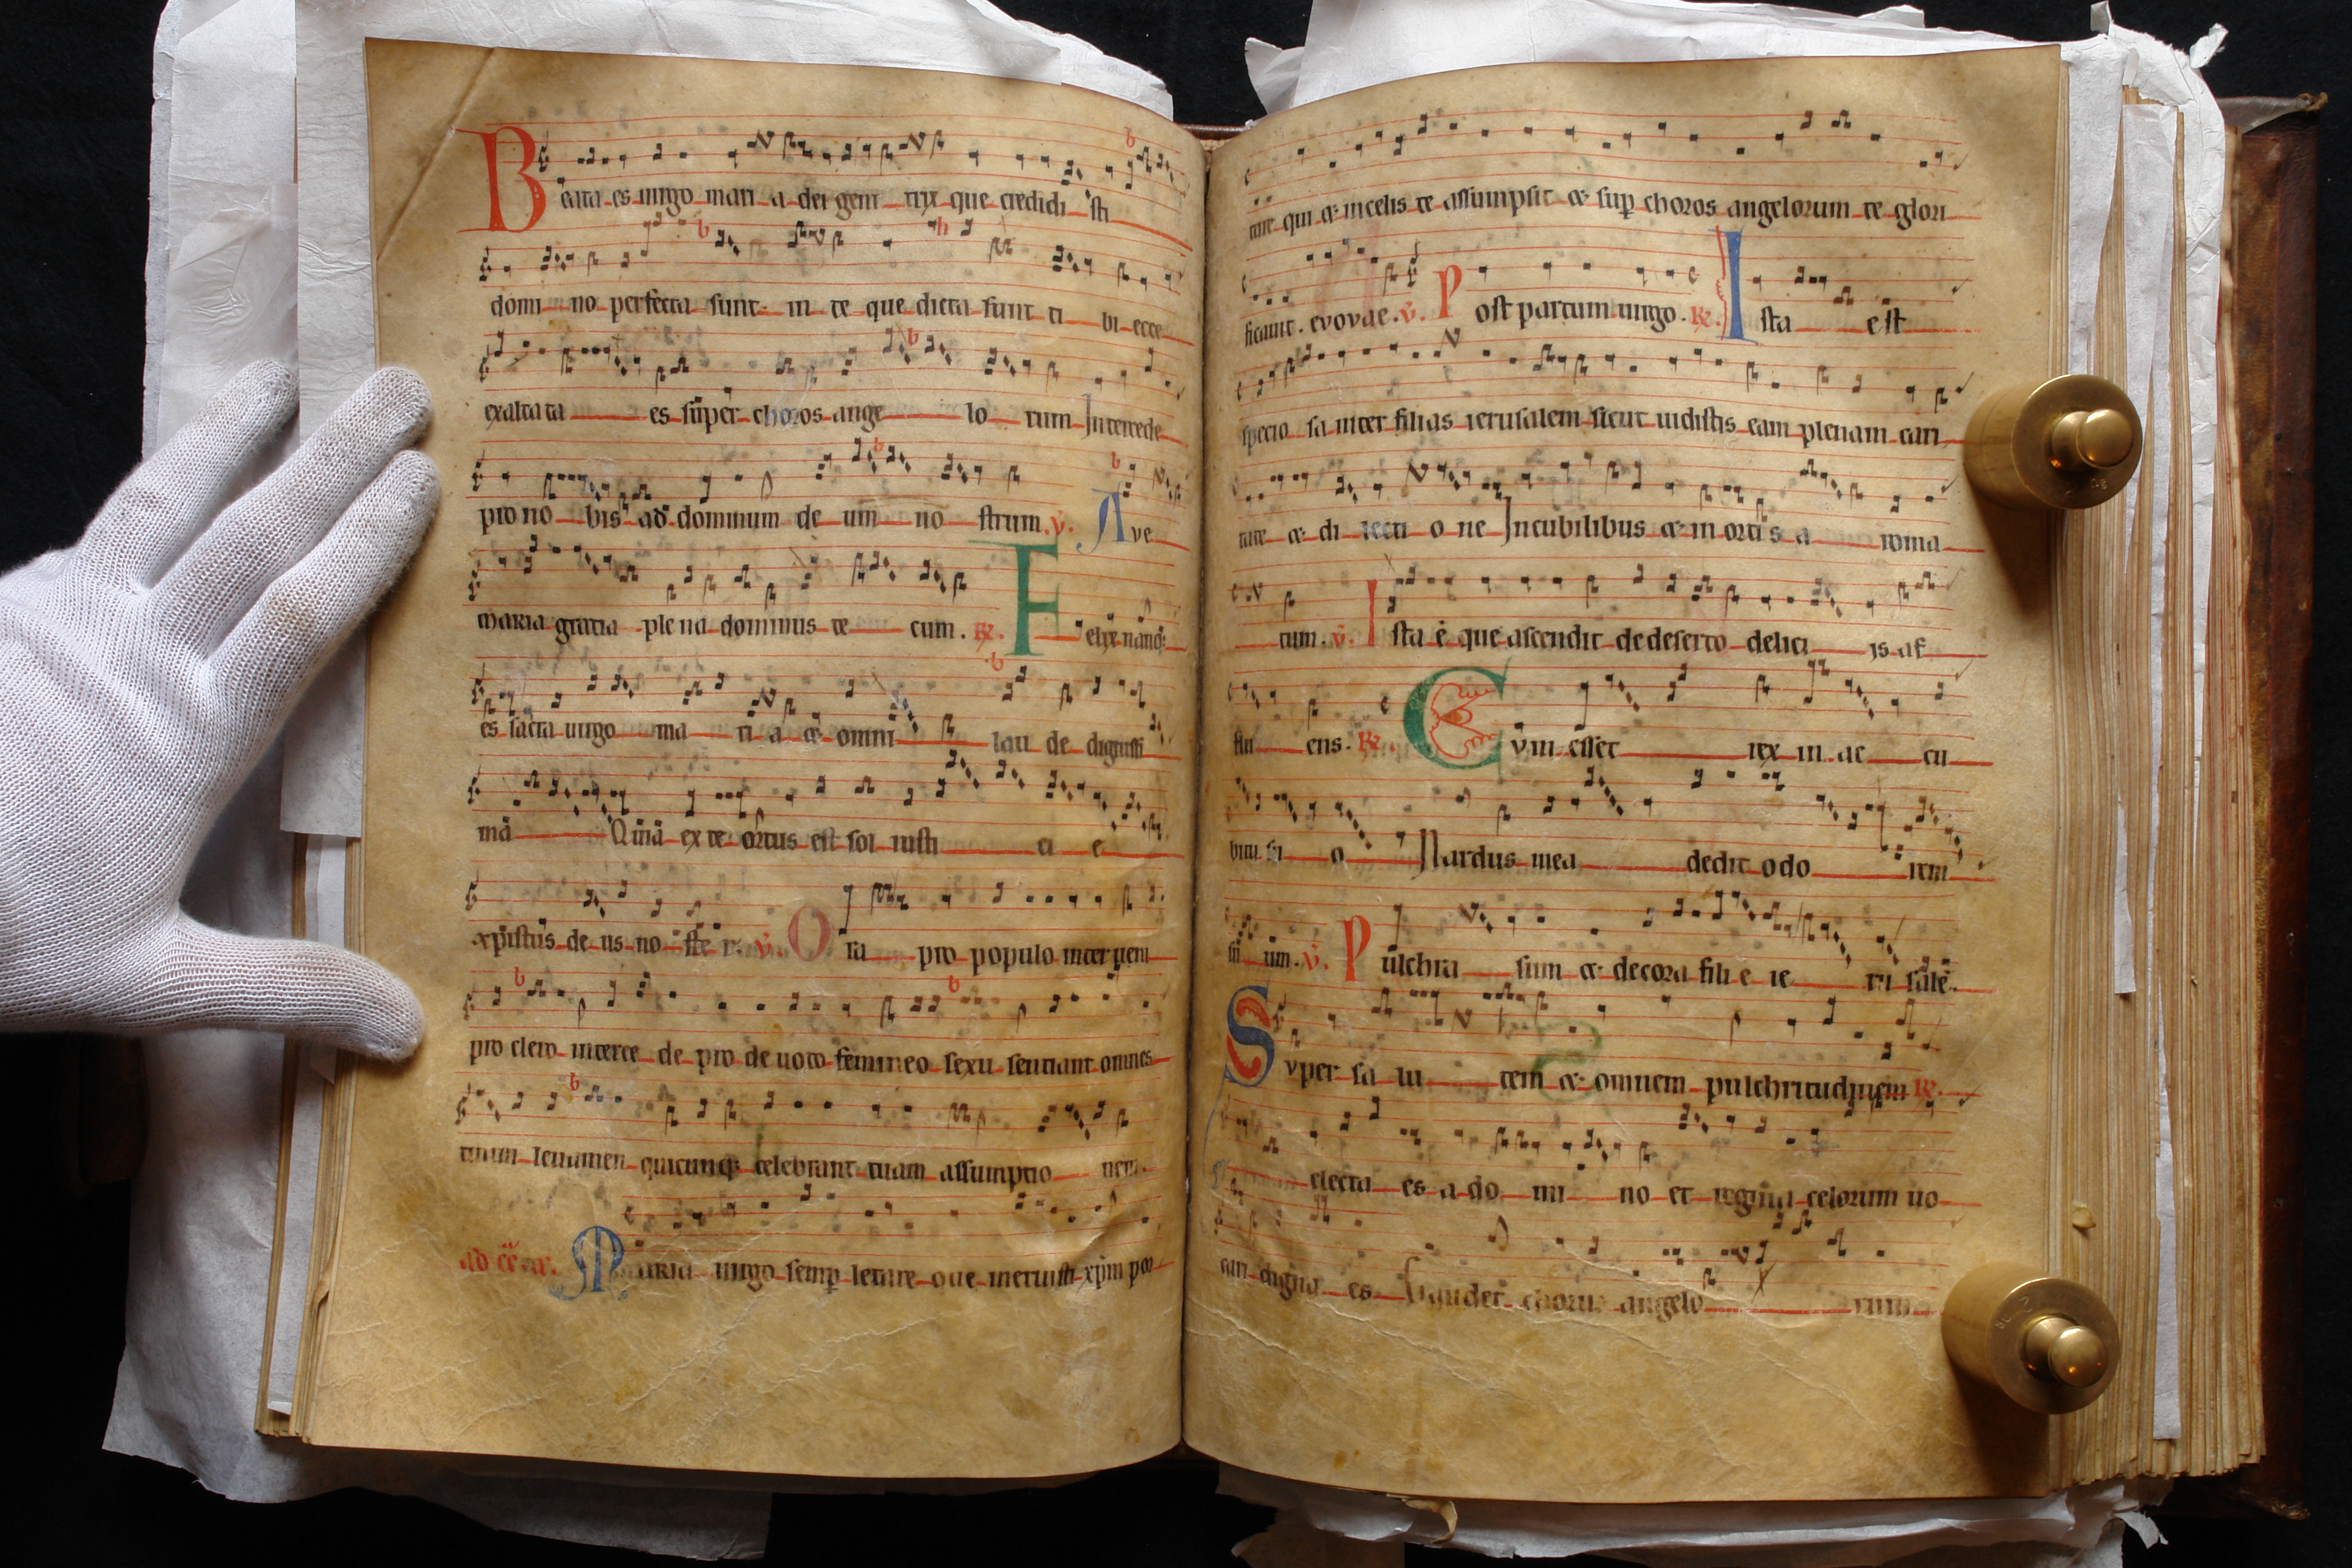 Beata es uirgo mari a dei geni trix que credidi sti
domi no perfecta sunt in te que dicta sunt ti bi ecce
exaltata es super choros ange lo rum Intercede
pro no bis ad dominum de um no strum. v. Ave
maria gratia plena dominus te cum. R. Felix nanq;
es sacra uirgo ma ri a & omni lau de dignissi
ma Quia ex te ortus est sol iusti ci e
xpistus de us no ste r. v. Ora pro populo interueni
pro clero interce de pro de uoto femineo sexu sentiant omnes
tuum leuamen quicunq; celebrant tuam assumptio nem.
Maria uirgo semp letare que meruisti xpm por
tare qui & in celis te assumpsit & sup choros angelorum te glori
ficauit. evovae. v. Post partum uirgo. R. Ista est
specio sa inter filias ierusalem sicut uidistis eam plenam cari
tate & di lecti o ne In cubilibus & in ortis a roma
tum. v. Ista e que ascendit de deserto delici is af
flu ens. R. Cvm esset rex in ac cu
bitu su o Nardus mea dedit odo rem
su um. v. Pulchra sum & decora fili e ie ru sale.
Svper sa lu tem & omnem pulchritudinem R.
electa es a do mi no et regina celorum uo
cari digna es Gaudet chorus angelo rum